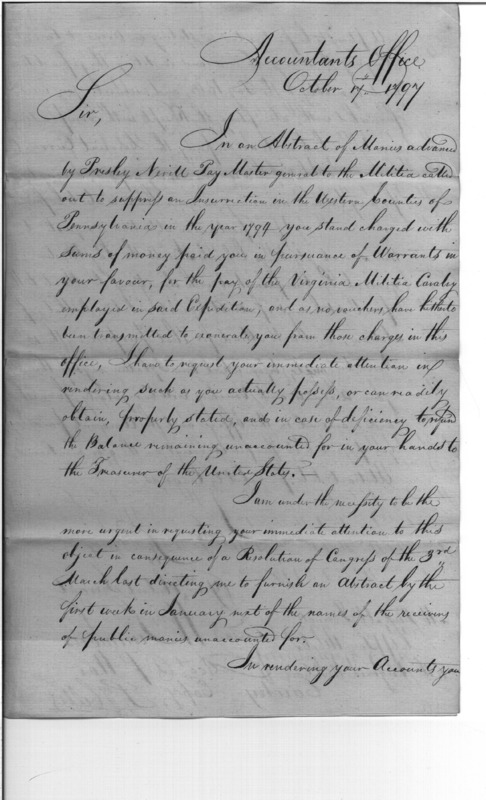 Accountants Office
October 17th 1797
Sir,
In an Abstract of Monies advanced
by Presley Nevill Pay Master general to the Militia called
out to suppress an Insurrection in the Western Counties of
Pennsylvania in the year 1794 you stand charged with
sums of money paid you in pursuance of Warrants in
your favour, for the pay of the Virginia Militia Cavalry
employed in said Expedition; and as no vouchers have hitherto
been transmitted to exonerate you from those charges in this
office, I have to request your immediate attention in
rendering such as you actually possess, or can readily
obtain, properly stated, and in case of deficiency to refund
the Balance remaining unaccounted for in your hands to
the Treasurer of the United States.
I am under the necessity to be the
more urgent in requesting your immediate attention to this
object in consequence of a Resolution of Congress of the 3rd
March last directing me to furnish an Abstract by the
first week in January next of the names of the receivers
of public monies unaccounted for.
In rendering your Accounts you